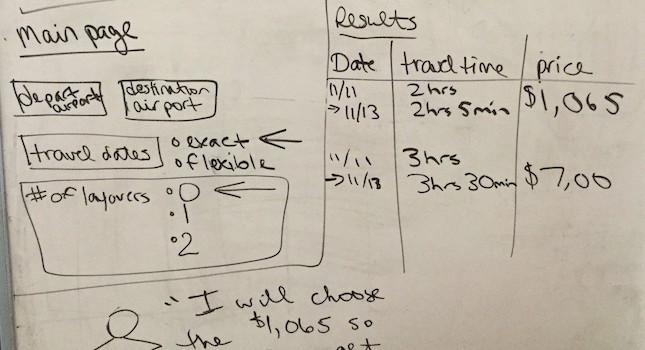 Main page
depart airport
destination airport
travel dates
exact
flexible
# of layovers
0
1
2
Results
Date travel time price
11/11 2hrs
→ 11/13 2hrs 5min $1,065
11/11 3hrs
→ 11/13 3hrs 30min $7,00
"I will choose
the $1,065 so